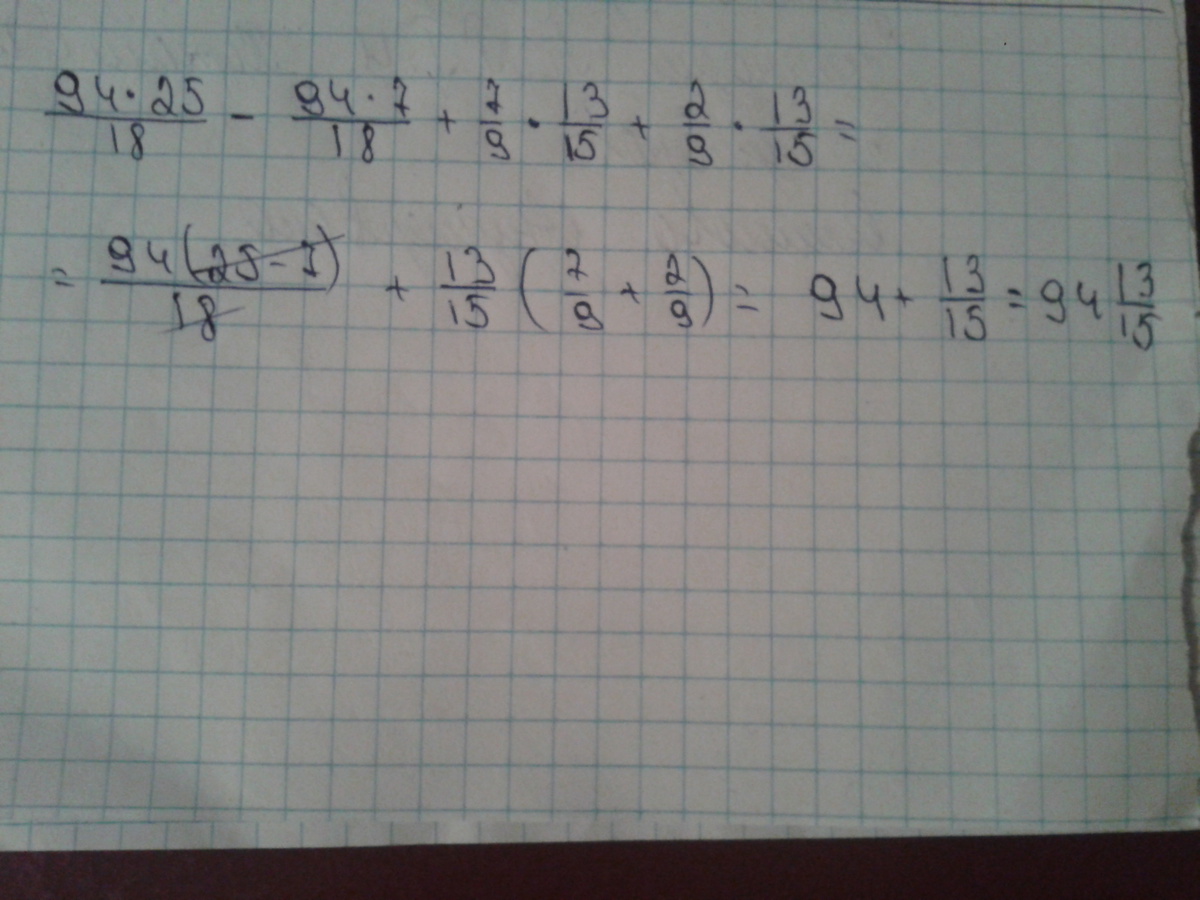 94·25/18 - 94·7/18 + 7/9 · 13/15 + 2/9 · 13/15 =
= 94(25-7)/18 + 13/15 (7/9 + 2/9) = 94 + 13/15 = 94 13/15